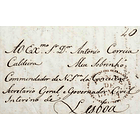 40
Ao Exmo Sr. Dr. Antonio Correia
Caldeira Meu Sobrinho
Commendador de N.S. da Conceição
Secretario Geral e Governador Civil
Interino de
Lisboa